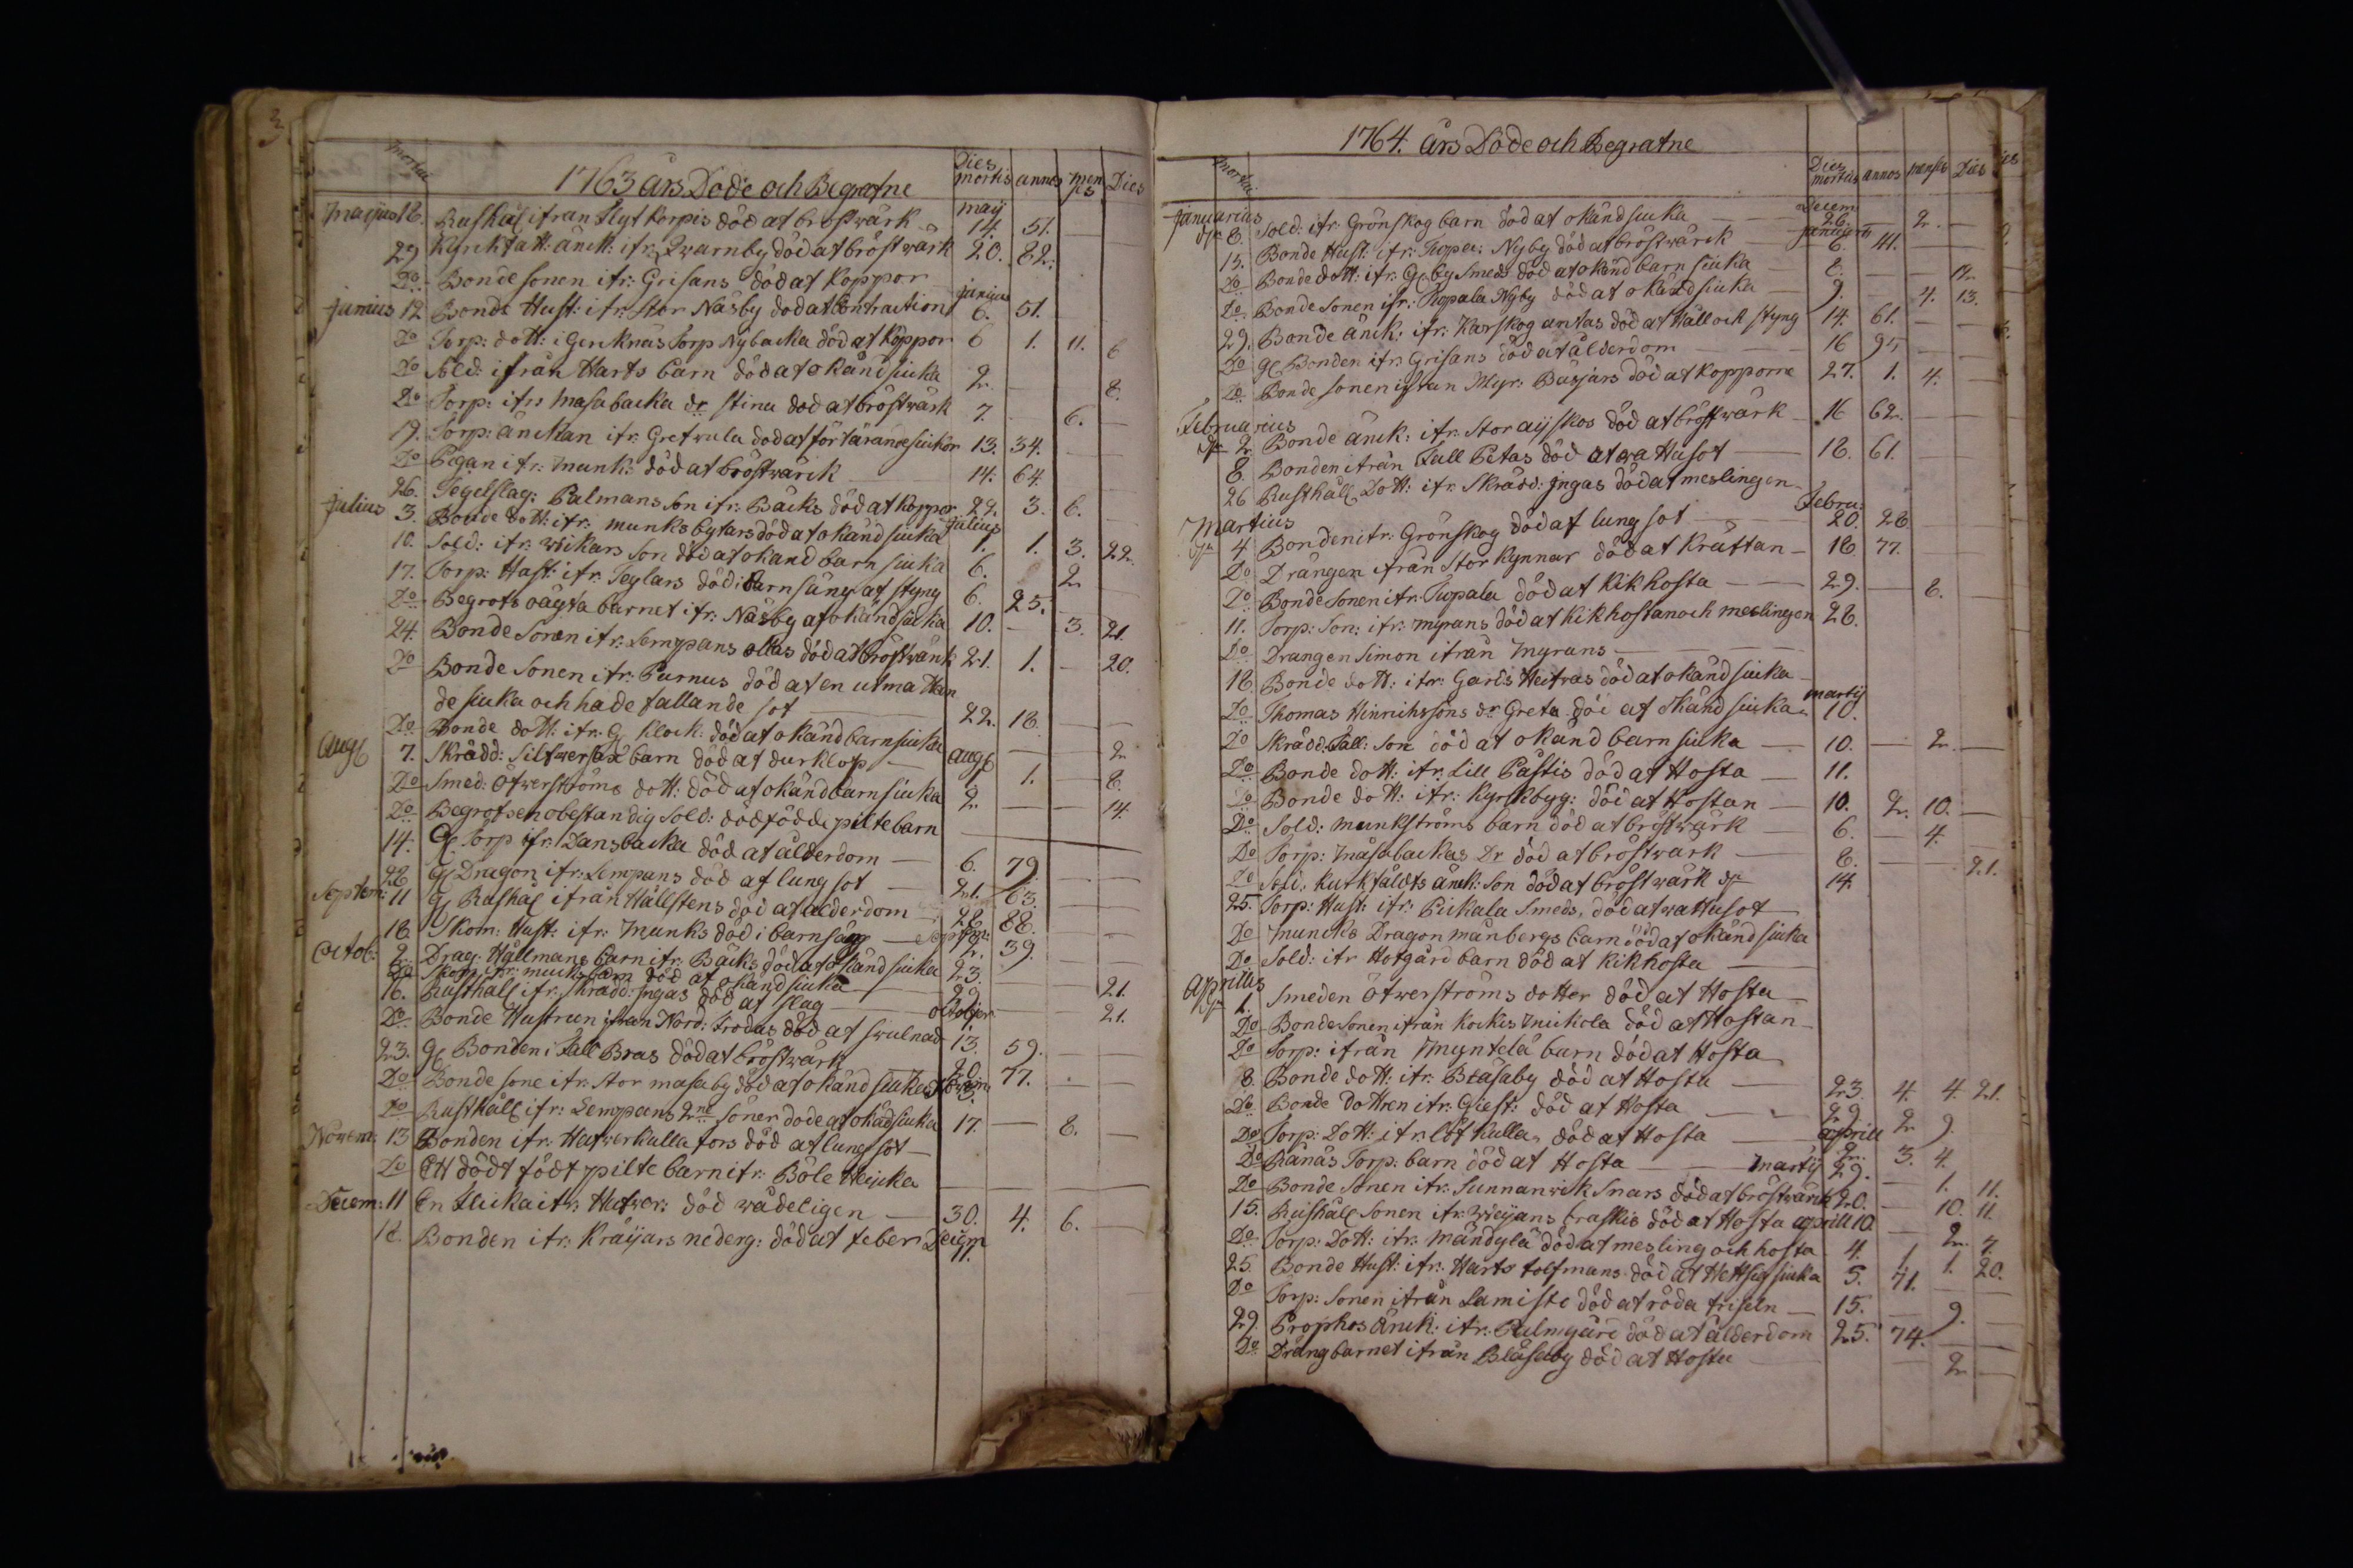 3
mortui
1763 års Döde och Begrafne
Dies mortis annos men ses Dies
majus 18. Rushål ifrån Nyt Korpis död af bröstwärk maij 14. 51.
29 Kyrkfatt: änck: ifr: Qwarnby död af bröstwärk 20. 82.
Do Bonde sonen ifr: Grisans död af Koppor
junius 12 Bonde Hust: ifr: Stor Näsby död af Contraction junius 6. 51.
Do Torp: dott: i Gereknäs Torp Nybacka död af Koppor 6 1. 11. 6
Do Sold: ifrån Harts barn död af okänd siuka 2. 8.
Do Torp: ifrs masabacka dr stina död af bröstwärk 7. 6.
19. Torp: änckan ifr: Gretwula död af förtärande siukdn 13. 34.
Do Pigan ifr: munks död af bröstwärk 14. 64.
26. Tegelslag: Palmans son ifr: Bäcks död af Koppor 22. 3. 6.
julius 3. Bonde dott: ifr: munks bytars död af okänd siuka julius 1. 1. 3. 22.
10. Sold: ifr: wikars son död af okänd barn siuka 6. 2
17. Torp: Hust: ifr: Teglars död i barnsäng af styng 6. 25.
Do Begrofs oägta barnet ifr: Näsby af okänd siuka 10. – 3. 21.
24. Bonde Sonen ifr: Lempans ollas död af bröstwärk 21. 1. – 20.
Do Bonde sonen ifr: Purnus död af en utmattan
de siuka och hade fallande sot 22. 18.
Do Bonde dott: ifr: G Klock: död af okänd barnsiuka – 2
Aug 7. Skrädd: Silfwerfax barn död af durklop Aug 1. 8.
Do Smed: Öfwerströms dott: död af okänd barn siuka 2. – 14.
Do Begrofs en obeständig Sold: dödfödde piltebarn
14. Gl Torp ifr: Dansbacka död af ålderdom 6. 79.
28 Gl Dragon ifr: Lempans död af lungsot 21. 63.
Septem: 11 Gl Rushål ifrån Hällstens död af ålderdom 28. 88.
18. Skom: Hust: ifr: Munks död i barnsäng Septem: 2. 39.
Octob: 2. Drag: Hällmans barn ifr: Bäcks död af okänd siuka 23. 21.
Do Skom ifr: munks barn död af okänd siuka 29 21.
16. Rusthål ifr: Skrädd: jngas död af slag october
Do Bonde Hustrun ifrån Nord: Trodas död af swulnad 13. 59.
23. Gl Bonden i Fall Bras död af bröstwärk 20. 77.
Do Bonde sone ifr: Stor masaby död af okänd siuka Novem: 3.
Do Rusthåll ifr: Lempans 2ne söner dode af okäd siuka 17. – 8.
Novem: 13 Bonden ifr: Hafwerkulla fors död af lungsot
Do Ett dödt födt piltebarn ifr: Böle Heicka
Decem: 11 En flicka ifr: Hafwer: död wådeligen 30. 4. 6.
18. Bonden ifr: Kråijars nederg: död af feber Decem 11.
1764. års Döde och Begrafne
mortui
Dies mortis annos menses Dies
januarius Decem
dr 8. Sold: ifr: Grönskog barn död af okänd siuka 26. – 2.
15. Bonde Hust: ifr: Tupa: Nyby död af bröstwärk januarii 6. 41.
Do Bonde dott: ifr: Gl by Smeds död af okänd barn siuka 8. 12.
Do Bonde Sonen ifr: Tupala Nyby död af okänd siuka 9. 4. 13.
29. Bonde änck: ifr: Karskog antas död af Håll och styng 14. 61.
Do Gl Bonden ifr: Grisans död af ålderdom 16 95
Do Bonde sonen ifrån Myr: Bäsjars död af Kopporne 27. 1. 4.
Februarius
dr 2 Bonde änck: ifr: Stor aijskos död af bröstwärk 16 62.
8. Bonden ifrån Fall Petas död af wattusot 18. 61.
26 Rusthåll Dott: ifr: Skrädd: jngas död af meslingen
Martius Febru:
dn 4 Bonden ifr: Grönskog död af lungsot 20. 28
Do Drängen ifrån Stor Kynnar död af Kräftan 18. 77.
Do Bonde Sonen ifr: Tupala död af Kikhosta 29. – 8.
11. Torp: Son: ifr: myrans död af Kikhostan och meslingen 28.
Do Drangen Simon ifrån Myrans
18. Bonde dott: ifr: Gards Heitras död af okänd siuka
Do Thomas Hinrichssons dr Greta död af okänd siuka martij 10.
Do Skrädd: Fall: Son död af okänd barn siuka 10. – 2.
Do Bonde dott: ifr: Lill Pastis död af Hosta 11.
Do Bonde dott: ifr: Kyrckbyg: död af Hostan 10. 2. 10.
Do Sold: munkströms barn död af bröstwärk 6. – 4.
Do Torp: Masabackas Dr död af bröstwärk 8. – – 21.
Do Sold: Kurkfäldts änck: son död af bröstwärk 14.
25. Torp: Hust: ifr: Pickala Smeds, död af wattusot
Do Muncks Dragon månbergs barn död af okänd siuka
Do Sold: ifr Hofgård barn död af Kikhosta
Aprillis
dr 1. Smeden Öfwerströms dotter död af Hosta
Do Bonde Sonen ifrån Kockis Mickola död af Hostan
Do Torp: ifrån Myntelä barn död af Hosta
8. Bonde dott: ifr: Blåsaby död af Hosta 23. 4. 4. 21.
Do Bonde Dottren ifr: Giest: död af Hosta 29 2 9.
Do Torp: Dott: ifr: löf Kulla, död af Hosta aprill 2. 3. 4.
Do Ranäs Torp: barn död af Hosta martij 29. – 1. 11.
Do Bonde Sonen ifr: Sunnanwik Snars död af bröstwärk 20. – 10. 11.
15. Rushåll sonen ifr: Weijans braskis död af Hosta aprill 10. – 2. 7.
Do Torp: Dott: ifr: mändylä död af mesling och hosta 4. 1. 1. 20.
25. Bonde Hust: ifr: Harts tolfmans död af Hettsig siuka 5. 71.
Do Torp: Sonen ifrån Lamisto död af röda friseln 15. – 9.
29. Prophos änck: ifr: Palmgård död af ålderdom 25. 74.
Do Drängbarnet ifrån Blåsaby död af Hosta – 2